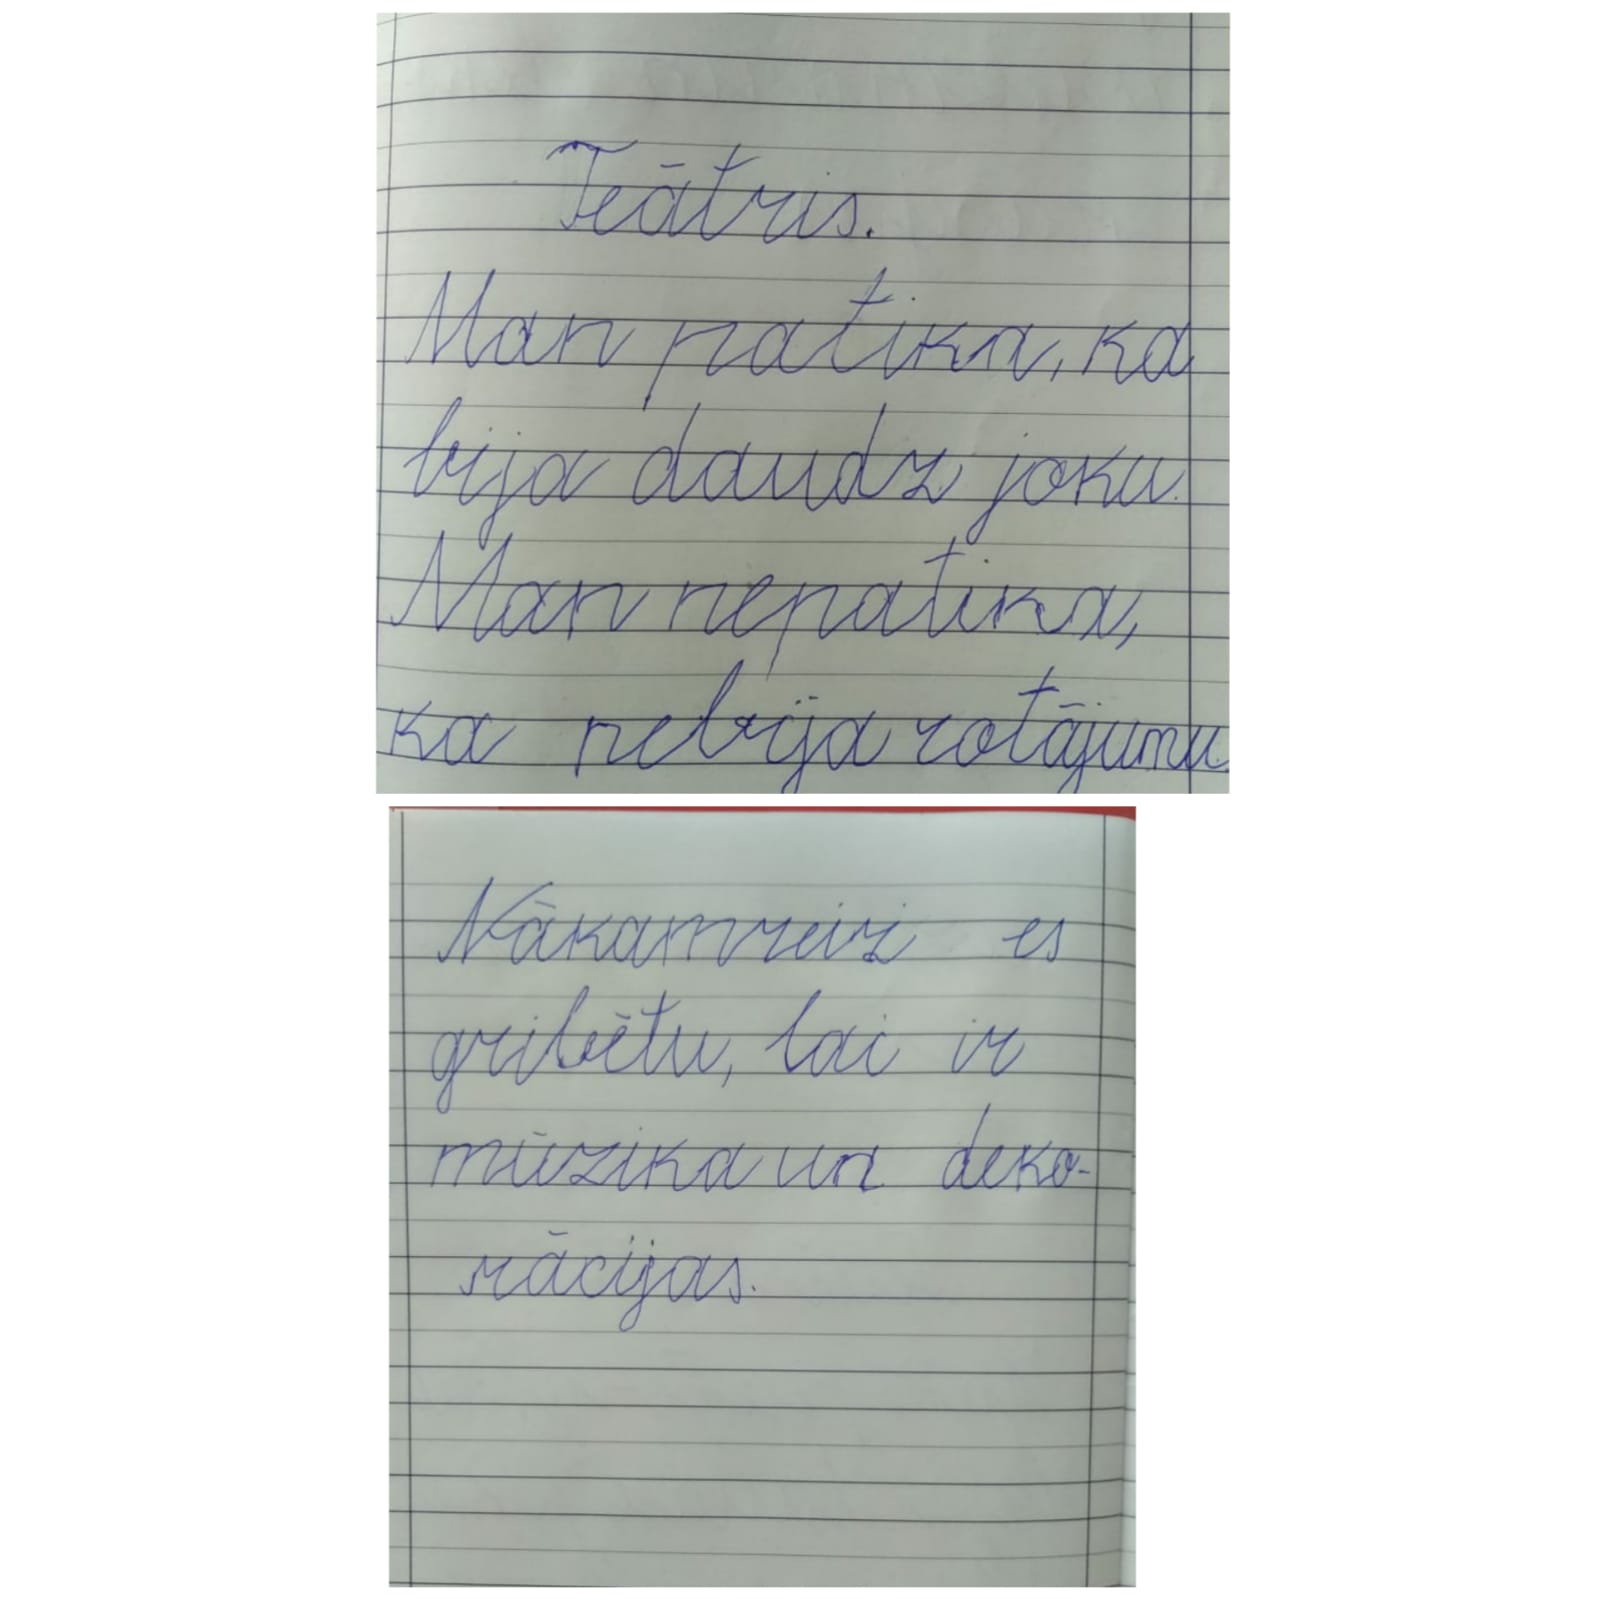 Teātris.
Man patika, ka
bija daudz joku.
Man nepatika,
ka nebija rotājumu.
Nākamreiz es
gribētu, lai ir
mūzika un deko-
rācijas.